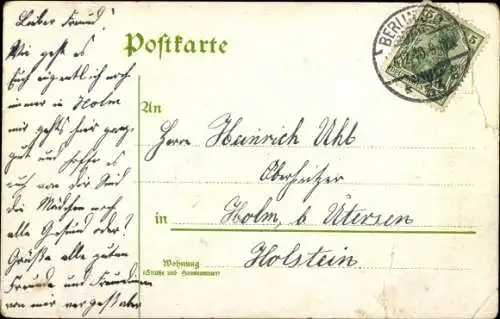 Lieber Freund!
Wie geht es
Euch eigentlich noch
immer in Holm
mir gehts hier ganz
gut und hoffe es
auch von Dir. Sind
die Mädchen noch
alle Gesund oder?
Grüße alle guten
Freunde und Freundinnen
von mir
Postkarte
BERLIN
5
An
Herrn Heinrich Uhl
in Holm, b Ütersen
Holstein.
Wohnung
(Straße und Hausnummer)